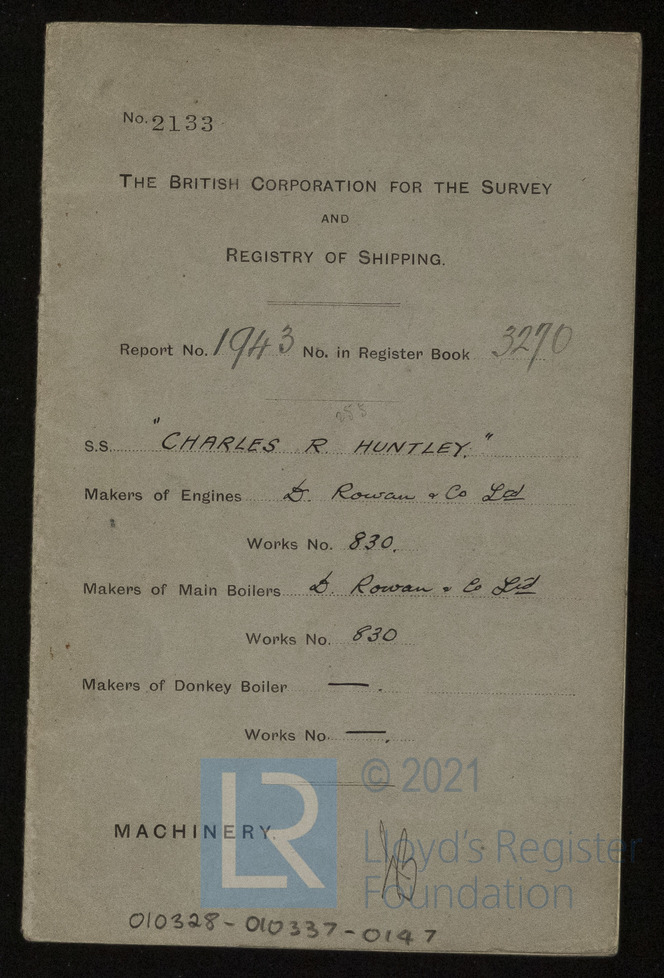 No. 2133
THE BRITISH CORPORATION FOR THE SURVEY
AND
REGISTRY OF SHIPPING.
Report No. 1943 No. in Register Book 3270
255
S.S. "CHARLES R. HUNTLEY."
Makers of Engines D. Rowan & Co Ltd
Works No. 830.
Makers of Main Boilers D. Rowan & Co Ltd
Works No. 830
Makers of Donkey Boiler — .
Works No. — .
© 2021
LR
MACHINERY.
Lloyd's Register
Foundation
010328-010337-0147